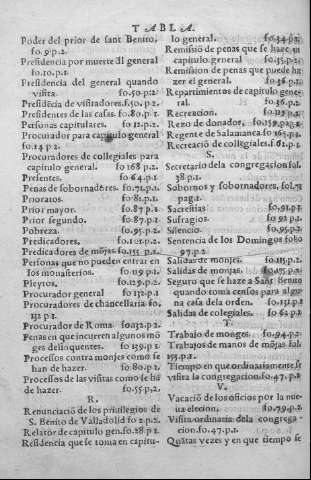 TABLA.
Poder del prior de sant Benito,
fo.9.p.2.
Presidencia por muerte đl general
fo.10.p.1.
Presidencia del general quando
visita fo.50.p.2.
Presidēcia de visitadores.f.50.p.2.
Presidentes de las casas. fo.80.p.1.
Personas capitulares. fo.12.p.2.
Procurador para capitulo general
fo.14 p 2.
Procuradores de collegiales para
capitulo general. fo 168 p.2.
Presentes. fo 64.p.1
Penas de sobornadores. fo.71.p.1.
Prioratos fo.81.p.1.
Prior mayor. fo.87.p.1.
Prior segundo. fo.87.p.1.
Pobreza. fo.95.p.2.
Predicadores, fo.101.p.2.
Predicadores de mōjas. fo.155 p.2.
Personas que no pueden entrar en
los monasterios. fo 119 p.1
Pleytos, fo.129.p.2.
Procurador general fo 132.p 1
Procuradores de chancillaria fo.
132 p 1.
Procurador de Roma. fo.132.p.2.
Penas en que incurren algunos mō
ges delinquentes. fo 139.p 1
Processos contra monjes como se
han de hazer. fo.80.p.1.
Processos de las visitas como se hā
de hazer. fo.55.p.2.
R.
Renunciació de los priuilegios de
S. Benito de Valladolid fo 2.p.2.
Relator de capitulo gen.fo.28 p 1
Residencia que se toma en capitu-
lo general. fo.34.p.2.
Remissiō de penas que se haze en
capitulo general fo.35.p.
Remission de penas que puede ha
zer el general. fo.46.p.1.
Repartimientos de capitulo gene-
ral. fo.36.p.2.
Recreacion. fo 113 p.2.
Rezo de donados, fo.159.
Regente de Salamanca fo 165 p.2.
Recreació de collegiales.f.62.p 1.
S.
Secretario dela congregacion fol.
38 p.1.
Sobornos y sobornadores. fol.71
pag.1.
Sacristias fo.91.p 1
Sufragios. fo 92 p.
Silencio. fo.95.p.
Sentencia de los Domingos folio
97.p.1.
Salidas de monjes. fo.115.p.2.
Salidas de monjas. fo.155.p.2.
Seguro que se haze a Sant Benito
quando toma censos para algu-
na casa dela orden. fo.131.p 1
Salidas de collegiales. fo 62 p 1
T.
Trabajo de monges. fo.94.p.2.
Trabajos de manos de mōjas fol.
153 p.1.
Tiempo en que ordinariamente se
visita la congregacion.fo.47. p.1
V.
Vacació de los oficios por la nue-
ua elecion. fo.79.p.2.
Visita ordinaria dela congrega-
cion.fo.47.p.1.
Quātas vezes y en que tiempo se